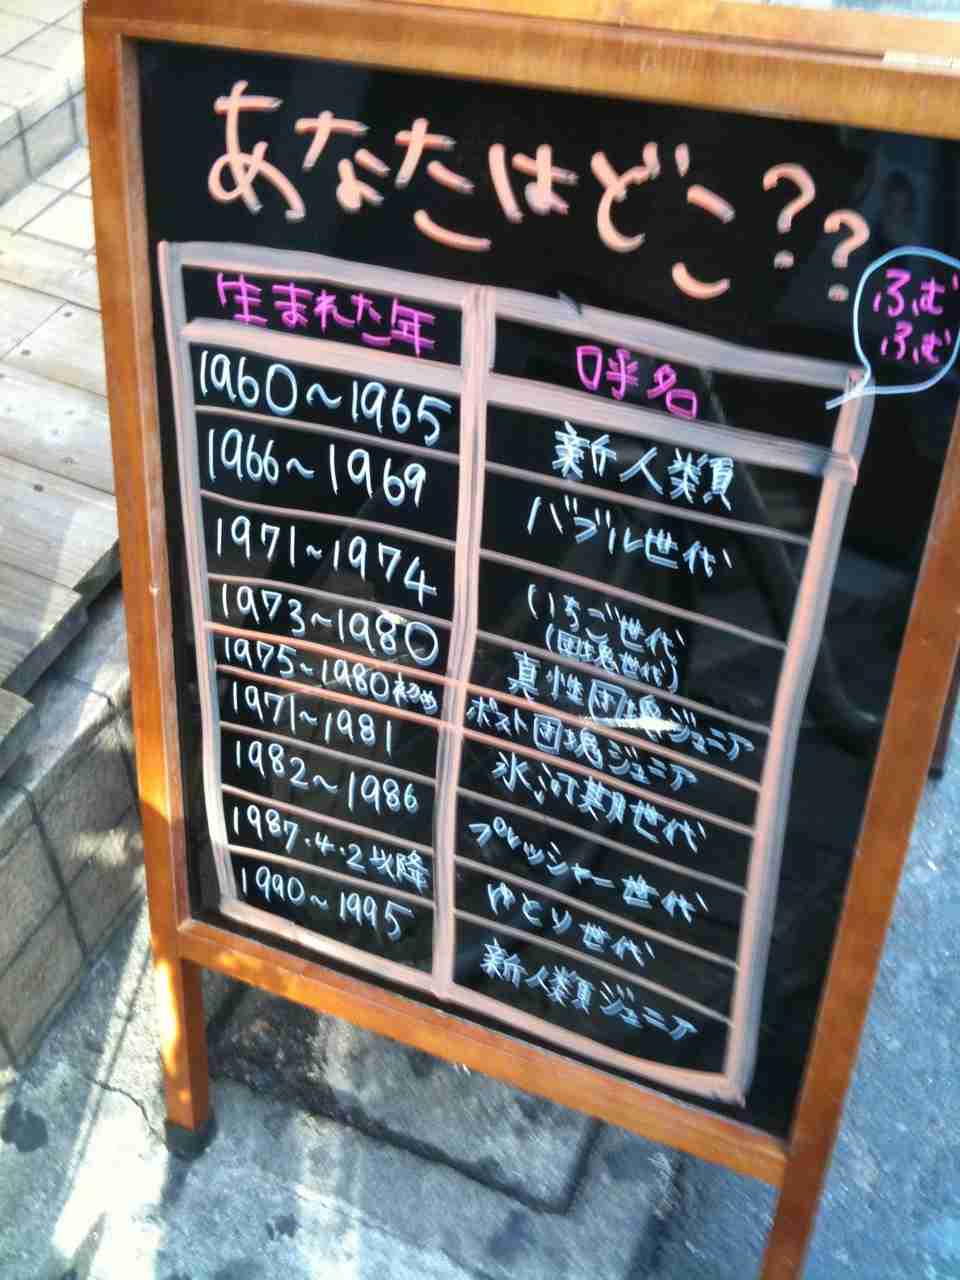 あなたはどこ??
ふむ
ふむ
生まれた年 呼名
1960~1965 新人類
1966~1969 バブル世代
1971~1974 いちご世代
(団塊世代)
1973~1980 真性団塊ジュニア
1975~1980初め ポスト団塊ジュニア
1971~1981 氷河期世代
1982~1986 プレッシャー世代
1987.4.2以降 ゆとり世代
1990~1995 新人類ジュニア